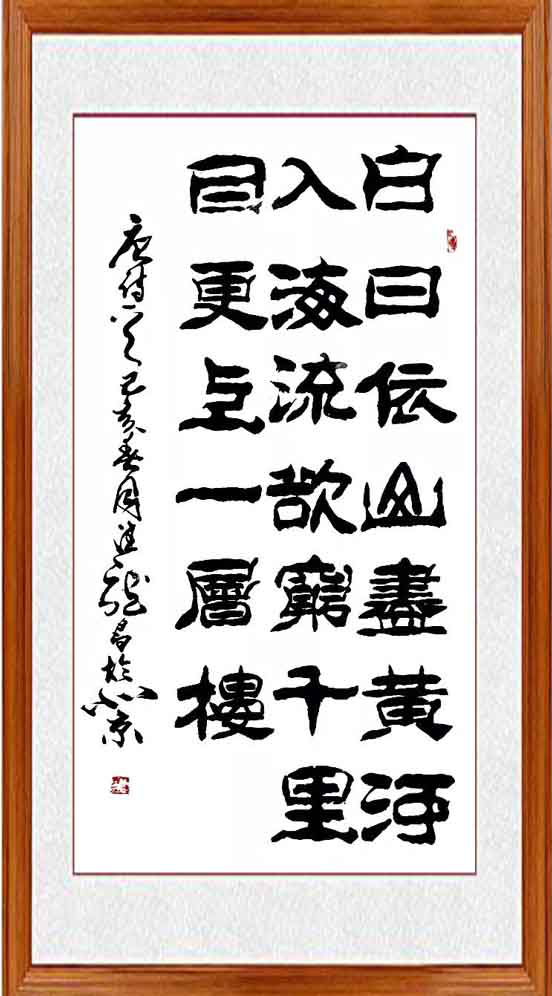 白日依山盡黃河
入海流欲窮千里
目更上一層樓
唐诗一首己亥春月龍書於北京